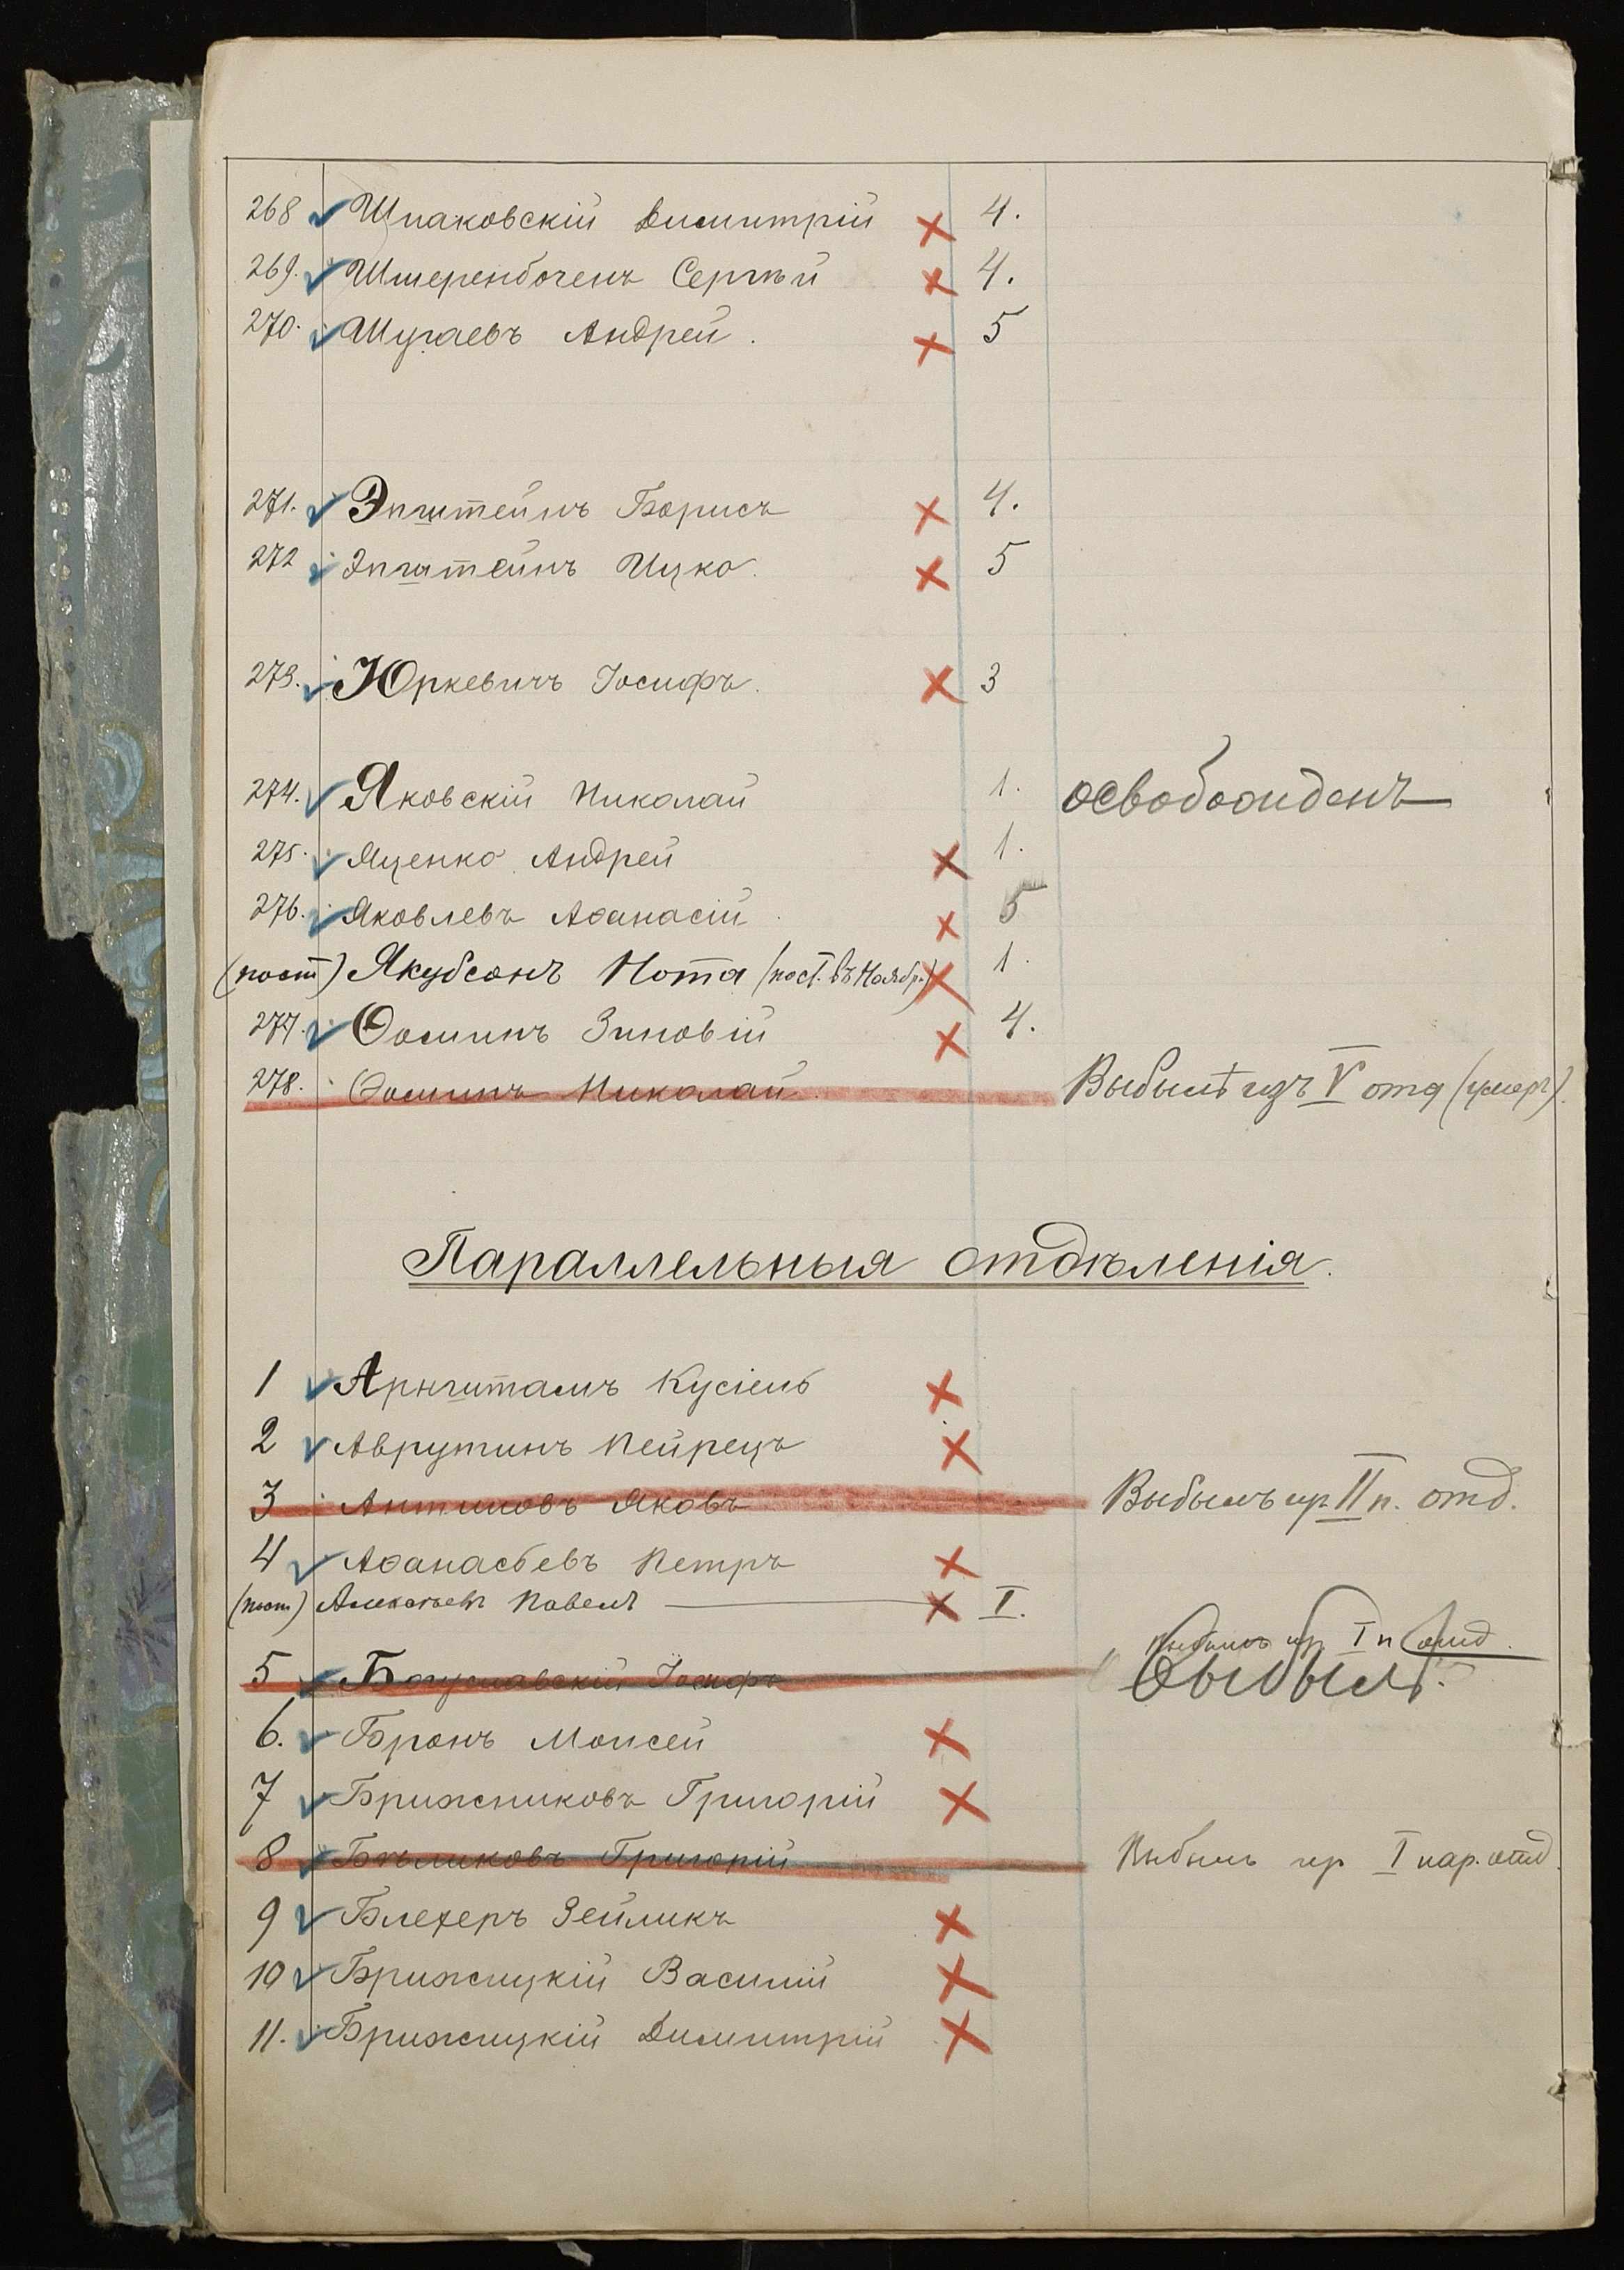 268 Шпаковскій Димитрій 4.
269. Штеренбогенъ Сергѣй 4.
270. Шугаевъ Андрей. 5
271. Эпштейнъ Борисъ 4.
272 Эпштейнъ Ицко. 5
273. Юркевичъ Іосифъ. 3
274. Яковскій Николай 1. освобожденъ
275. Яценко Андрей 1.
276. Яковлевъ Аѳанасій 5
(пост) Якубсонъ Нота (пост. въ Ноябр.) 1.
277. Ѳоминъ Зиновій 4.
278. Ѳоминъ Николай Выбылъ изъ V отд (умеръ).
Параллельныя отдѣленія.
1 Арнштамъ Кусіель
2 Аврутинъ Пейрецъ
3 Антиповъ Яковъ Выбылъ пр II п. отд.
4 Аѳанасьевъ Петръ
(пост) Алексѣевъ Павелъ I.
Выбылъ пр I п отд.
5 Богуславскій Іосифъ выбылъ.
6. Бронъ Моисей
7 Брижниковъ Григорій
8 Бѣликовъ Григорій Выбылъ пр I пар. отд.
9 Блехеръ Зейликъ
10 Брижицкій Василій
11. Брижицкій Димитрій